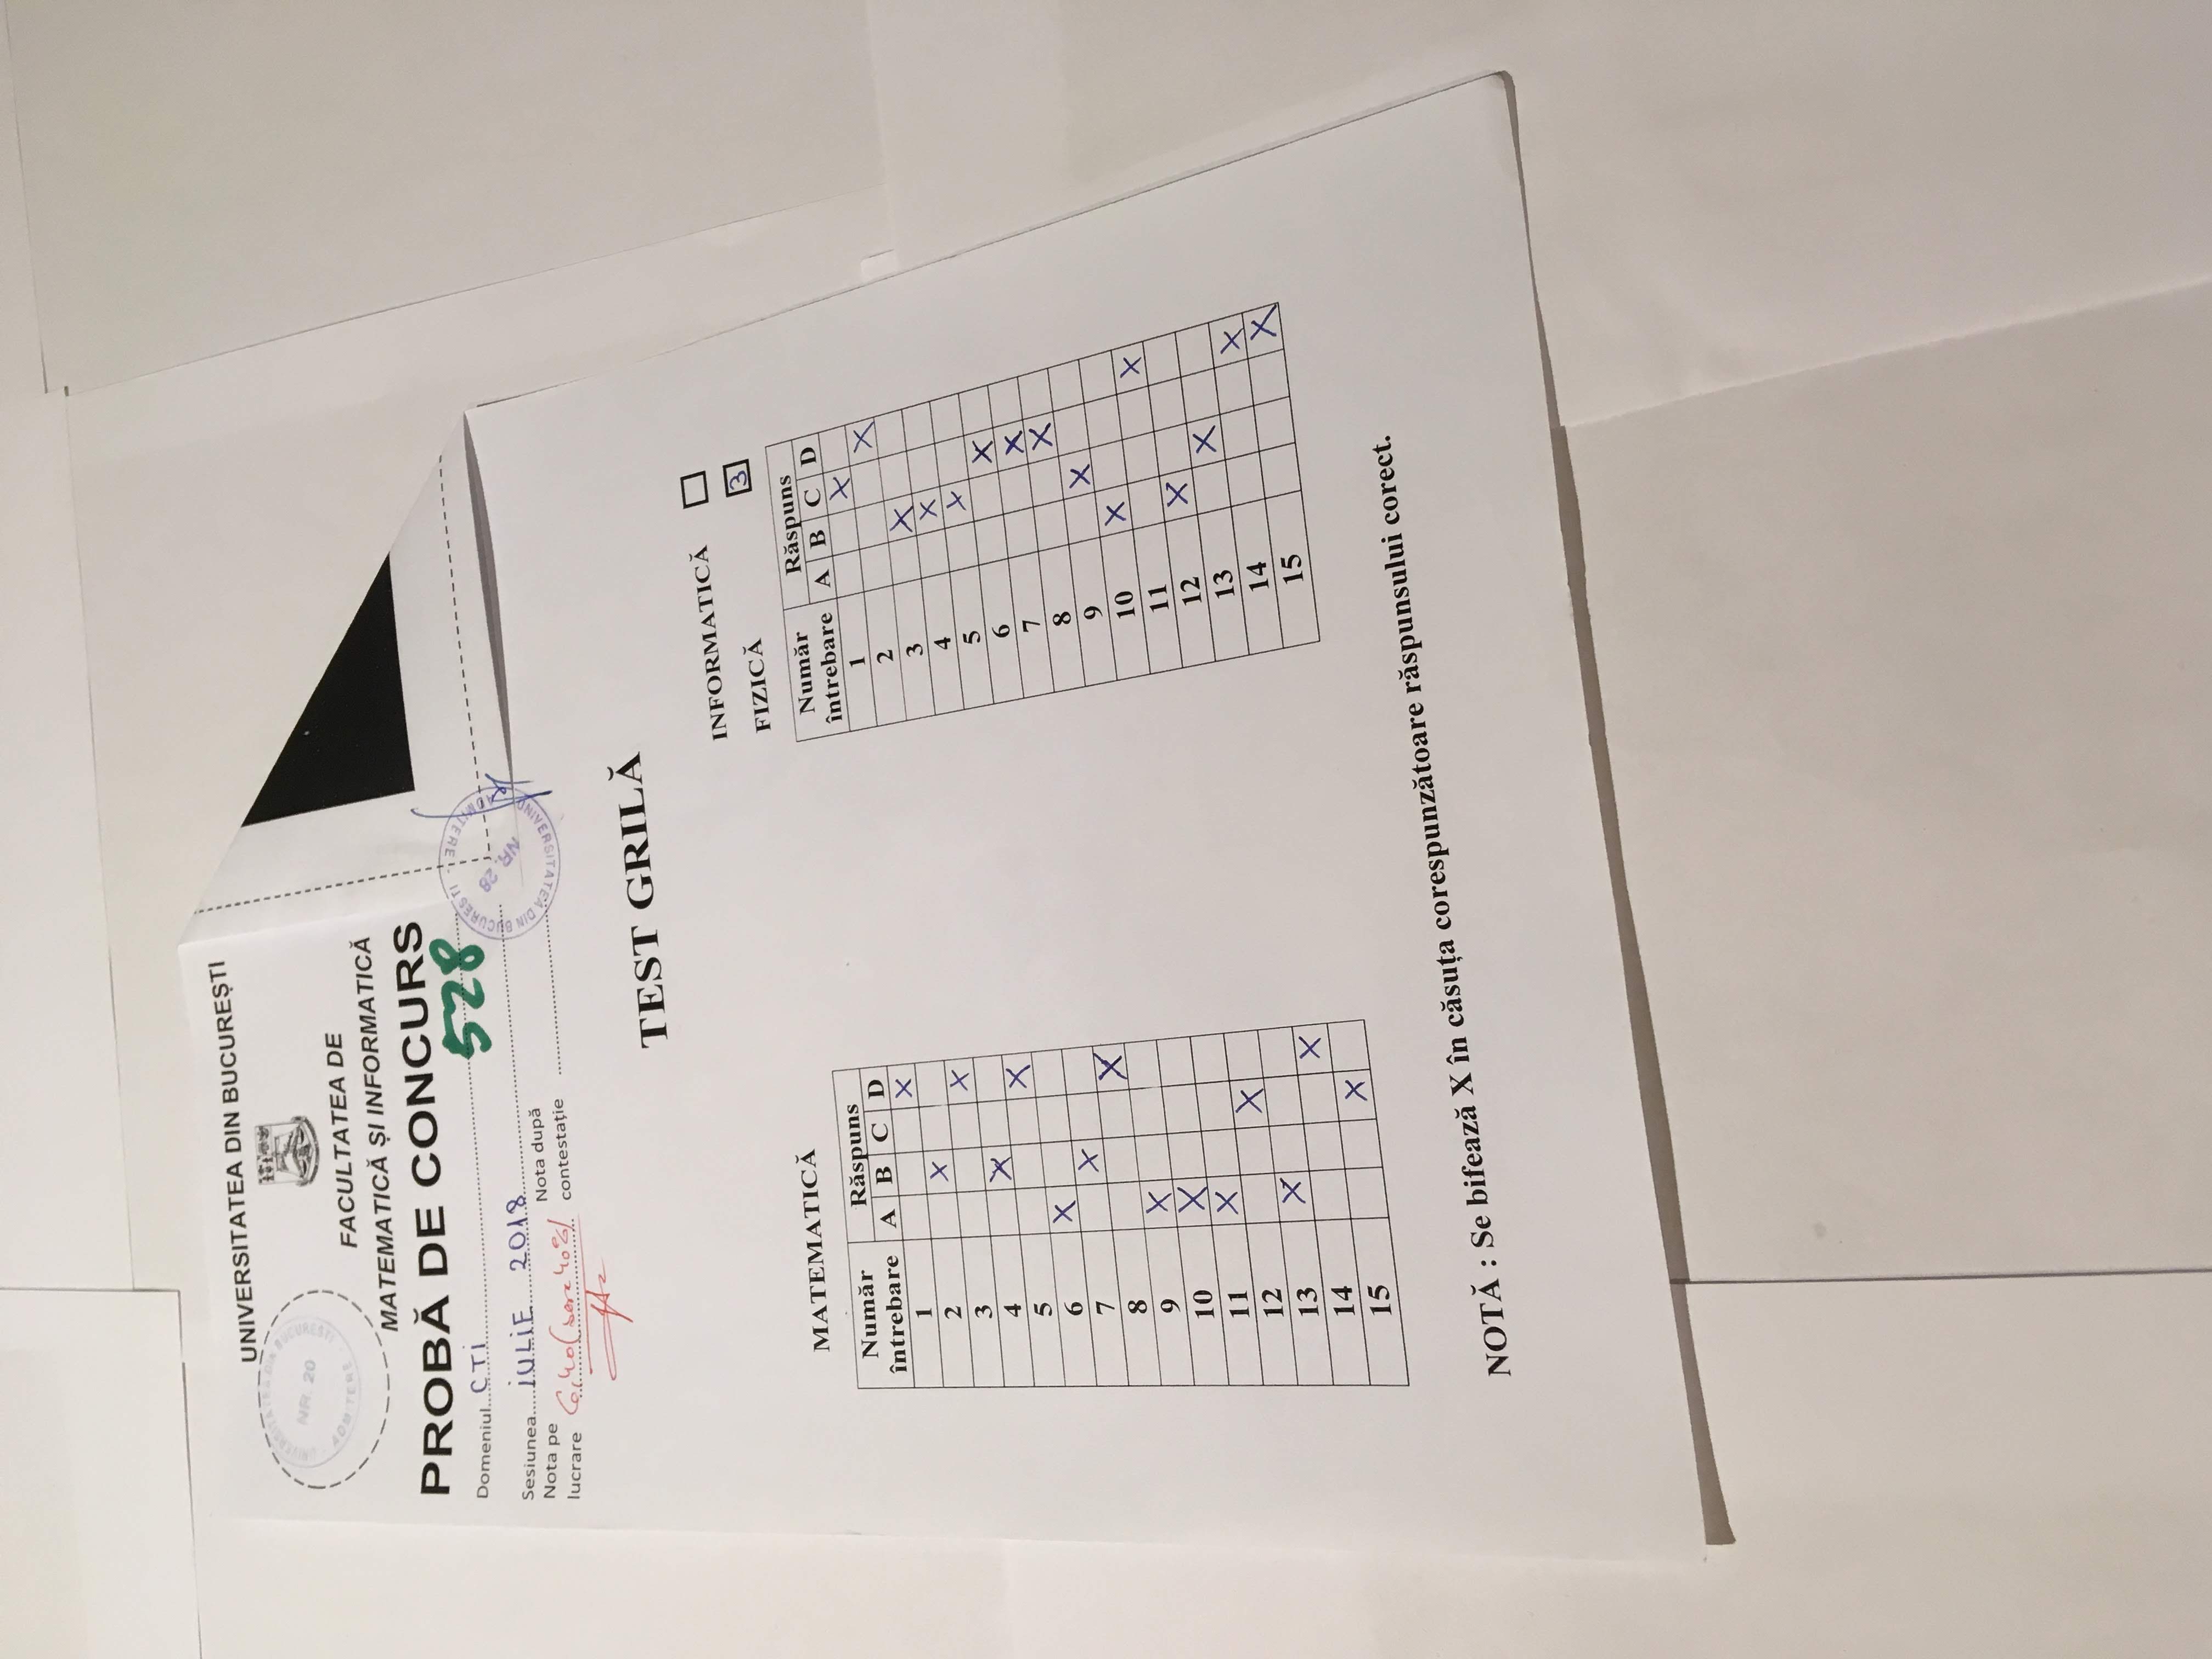 UNIVERSITATEA DIN BUCUREȘTI
UNIVERSITATEA DIN BUCUREȘTI
NR. 20
ADMITERE
FACULTATEA DE
MATEMATICĂ ȘI INFORMATICĂ
PROBĂ DE CONCURS
528
Domeniul CTI
Sesiunea IULIE 2018
Nota pe
lucrare 6,40
Nota după
contestație
UNIVERSITATEA DIN BUCUREȘTI
NR. 28
ADMITERE
TEST GRILĂ
INFORMATICĂ
FIZICĂ 3
MATEMATICĂ
Număr întrebare Răspuns
A B C D
1 X
2 X
3 X
4 X
5 X
6 X
7 X
8 X
9 X
10 X
11 X
12 X
13 X
14 X
15 X
Număr întrebare Răspuns
A B C D
1 X
2 X
3 X
4 X
5 X
6 X
7 X
8 X
9 X
10 X
11 X
12 X
13 X
14 X
15 X
NOTĂ : Se bifează X în căsuța corespunzătoare răspunsului corect.